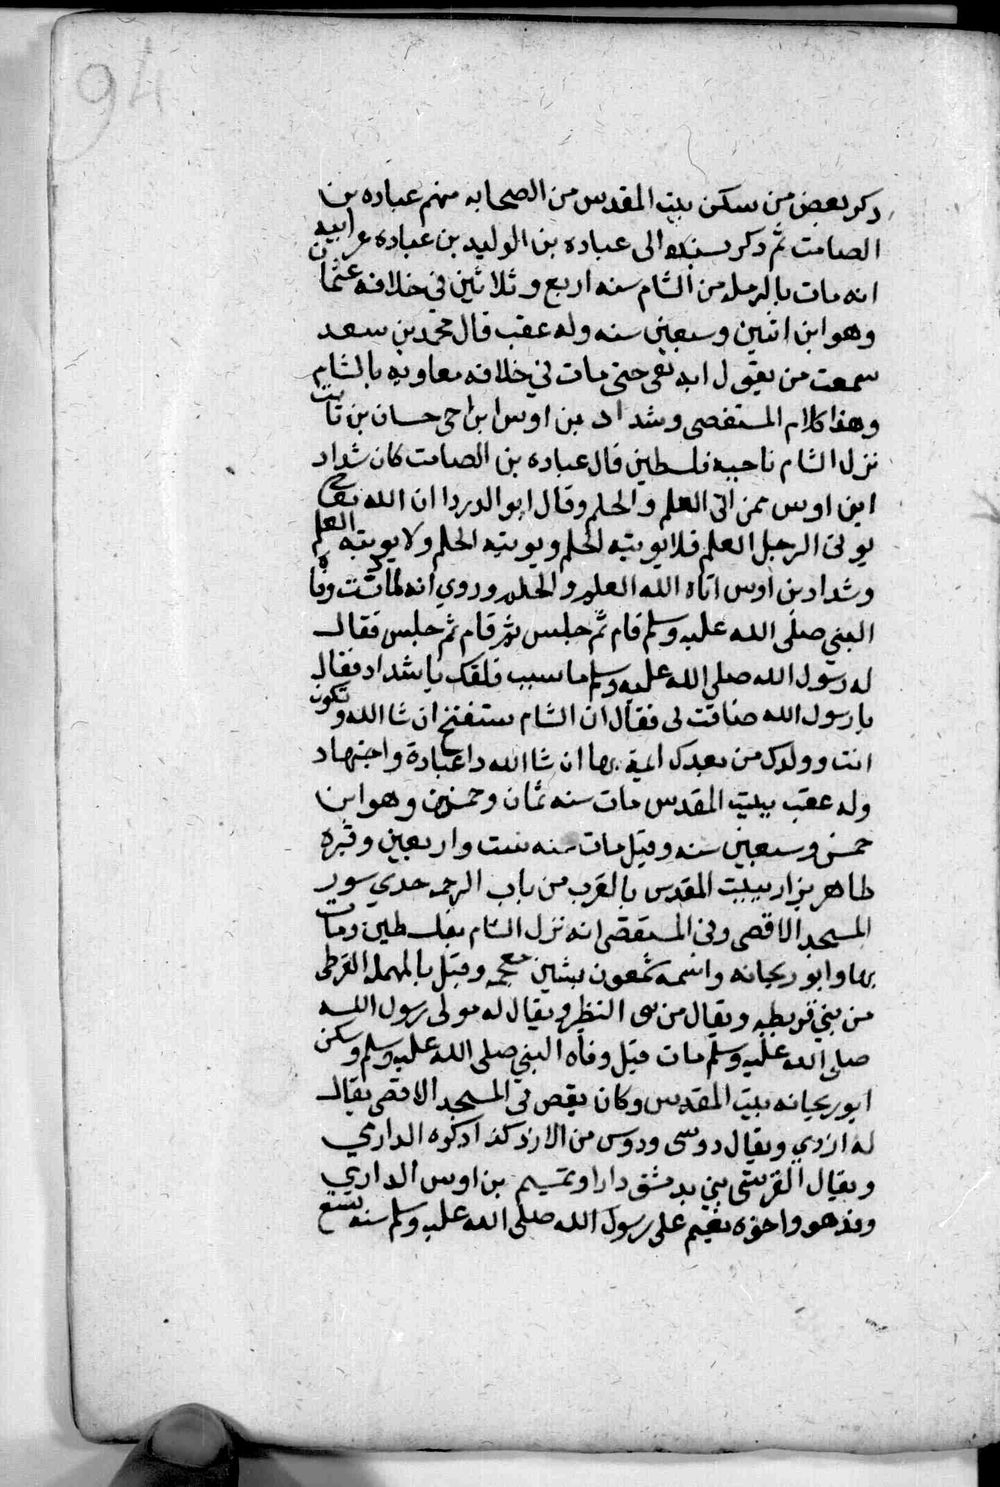 94
ذكر بعض من سكن بيت المقدس من الصحابه منهم عباده بن
الصامت ثم ذكر بسنده الى عباده بن الوليد بن عباده عن ابيه
انه مات بالرمله من الشام سنه اربع وثلاثين في خلافة عثمان
وهو ابن اثنين وسبعين سنه وله عقب قال محمد بن سعد
سمعت من يقول انه بقي حتى مات في خلافه معاويه بالشام
وهذا كلام المستقصى وشداد بن اوس ابن اخي حسان بن ثابت
نزل الشام ناحيه فلسطين قال عباده بن الصامت كان شداد
ابن اوس ممن اتى العلم والحلم وقال ابو الدردا ان الله تعالى
يوتى الرجل العلم فلا يوتيه الحلم ويوتيه الحلم ولا يوتيه العلم
وشداد بن اوس اتاه الله العلم والحلم وروي انه لما دنت وفاة
النبي صلى الله عليه وسلم قام ثم جلس ثم قام ثم جلس فقال
له رسول الله صلى الله عليه وسلم ما سبب قلقك يا شداد فقال
يا رسول الله ضاقت لي فقال ان الشام ستفتح ان شا الله وتكون
انت وولدك من بعدك ايمة بها ان شا الله ذا عبادة واجتهاد
وله عقب ببيت المقدس مات سنه ثمان وخمسين وهو ابن
خمس وسبعين سنه وقيل مات سنه ست واربعين وقبره
ظاهر يزار ببيت المقدس بالقرب من باب الرحمه حدي سور
المسجد الاقصى وفي المستقصى انه نزل الشام بفلسطين ومات
بها وابو ريحانه واسمه شمعون بشين معجمه وقيل بالمهمله القرظى
من بني قريظه ويقال من بني النظير ويقال له مولى رسول الله
صلى الله عليه وسلم مات قبل وفاة النبي صلى الله عليه وسلم وسكن
ابو ريحانه ببيت المقدس وكان يقص في المسجد الاقصى يقال
له ازدي ويقال دوسى ودوس من الازد كذا ذكره الدارمي
ويقال القرشي بني بدمشق دارا وتميم بن اوس الداري
وفد هو واخوه نعيم على رسول الله صلى الله عليه وسلم سنه تسع